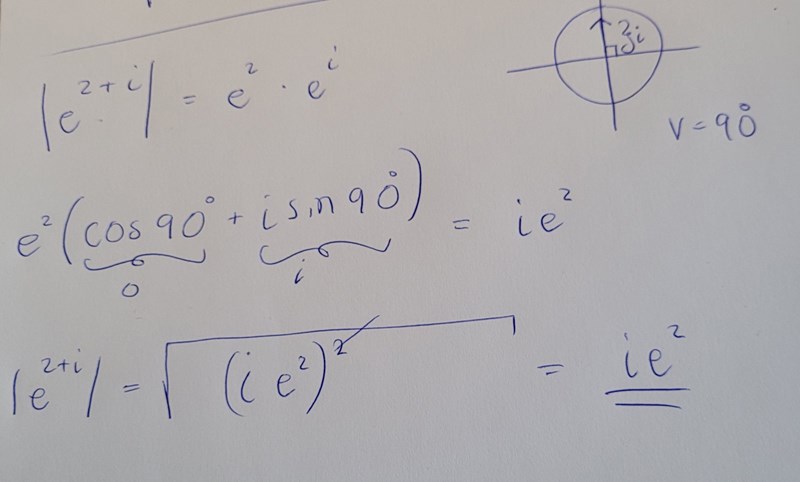 |e^{2+i}| = e^2 · e^i
i
v = 90°
e^2 (cos 90° + i sin 90°) = i e^2
0 i
|e^{2+i}| = √(i e^2)^2 = i e^2